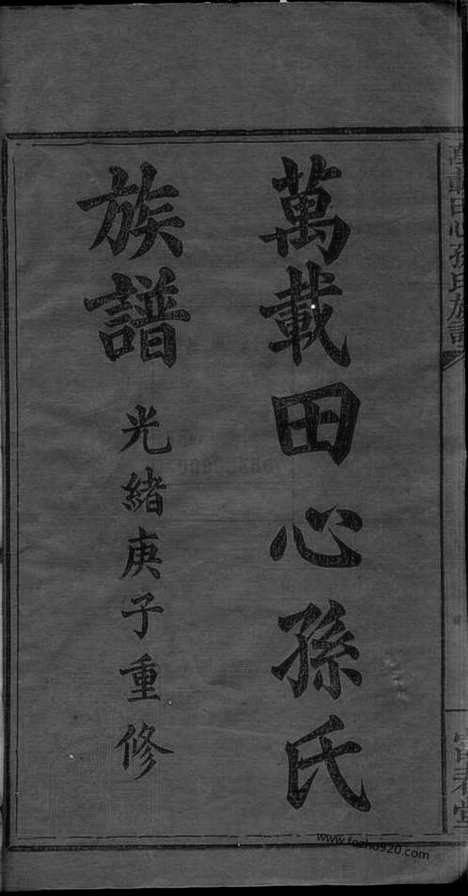 萬載田心孫氏
族譜
光緒庚子重修
萬載田心孫氏族譜
www.fozhu920.com